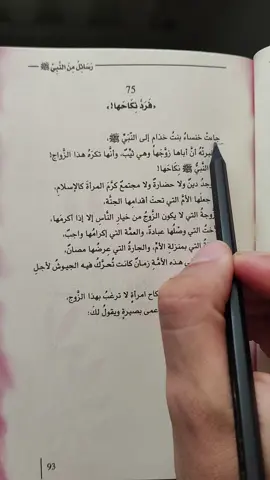 رسائل من النبي ﷺ
75
«فردَّ نكاحها!»
جاءتْ خنساءُ بنتُ خذام إلى النبيِّ ﷺ،
أنَّ أباها زوَّجها وهي ثيِّبٌ، وأنها تكرهُ هذا الزَّواج!
النبيُّ ﷺ نكاحها!
دينٌ ولا حضارةٌ ولا مجتمعٌ كرَّمَ المرأةَ كالإسلامِ،
جعلها الأمَّ التي تحت أقدامها الجنَّة،
التي لا يكون الزَّوجُ من خيارِ النَّاسِ إلا إذا أكرمَها،
التي وصْلُها عبادةٌ، والعمَّة التي إكرامُها واجبٌ،
التي بمنزلةِ الأمِّ، والجارةُ التي عِرضُها مصانٌ،
هذه الأمَّةِ زمانٌ كانت تُحرَّكُ فيه الجيوشُ لأجلِ
امرأةٍ لا ترغبُ بهذا الزَّوج،
بصيرةٍ ويقولُ لكَ:
93